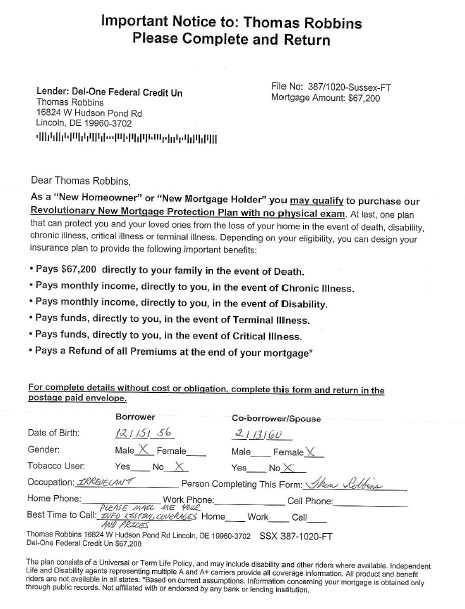 Important Notice to: Thomas Robbins
Please Complete and Return
Lender: Del-One Federal Credit Un
Thomas Robbins
16824 W Hudson Pond Rd
Lincoln, DE 19960-3702
File No: 387/1020-Sussex-FT
Mortgage Amount: $67,200
Dear Thomas Robbins,
As a "New Homeowner" or "New Mortgage Holder" you may qualify to purchase our
Revolutionary New Mortgage Protection Plan with no physical exam. At last, one plan
that can protect you and your loved ones from the loss of your home in the event of death, disability,
chronic illness, critical illness or terminal illness. Depending on your eligibility, you can design your
insurance plan to provide the following important benefits:
• Pays $67,200 directly to your family in the event of Death.
• Pays monthly income, directly to you, in the event of Chronic Illness.
• Pays monthly income, directly to you, in the event of Disability.
• Pays funds, directly to you, in the event of Terminal Illness.
• Pays funds, directly to you, in the event of Critical Illness.
• Pays a Refund of all Premiums at the end of your mortgage*
For complete details without cost or obligation, complete this form and return in the
postage paid envelope.
Borrower Co-borrower/Spouse
Date of Birth: 12/15/56 2/13/60
Gender: Male X Female Male Female X
Tobacco User: Yes No X Yes No X
Occupation: IRREVELANT Person Completing This Form: Robbins
Home Phone: Work Phone: Cell Phone:
PLEASE MAIL ME YOUR
Best Time to Call: INFO LISTING COVERAGES Home Work Cell
AND PRICES
Thomas Robbins 16824 W Hudson Pond Rd Lincoln, DE 19960-3702 SSX 387-1020-FT
Del-One Federal Credit Un $67,200
The plan consists of a Universal or Term Life Policy, and may include disability and other riders where available. Independent
Life and Disability agents representing multiple A and A+ carriers provide all coverage information. All product and benefit
riders are not available in all states. *Based on current assumptions. Information concerning your mortgage is obtained only
through public records. Not affiliated with or endorsed by any bank or lending institution.